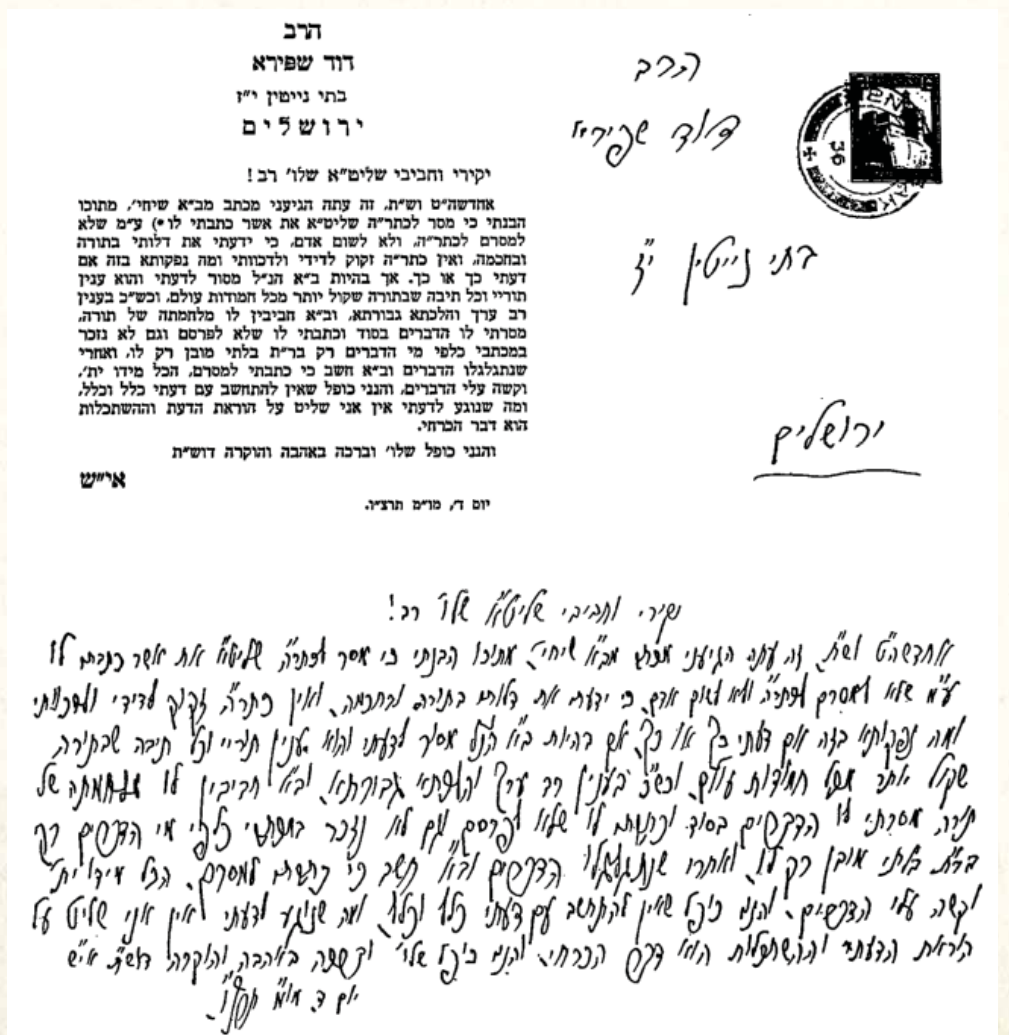 הרב
דוד שפירא
בתי נייטין י״ז
ירושלים
יקירי וחביבי שליט״א שלו׳ רב!
אחדשה״ט וש״ת, זה עתה הגיעני מכתב מב״א שיחי׳, מתוכו
הבנתי כי מסר לכתר״ה שליט״א את אשר כתבתי לו*) ע״מ שלא
למסרם לכתר״ה, ולא לשום אדם, כי ידעתי את דלותי בתורה
ובחכמה, ואין כתר״ה זקוק לדידי ולדכוותי ומה נפקותא בזה אם
דעתי כך או כך. אך בהיות ב״א הנ״ל מסור לדעתי והוא ענין
תוריי וכל תיבה שבתורה שקול יותר מכל חמודות עולם, וכש״כ בענין
רב ערך והלכתא גבורתא, וב״א חביבין לו מלחמתה של תורה,
מסרתי לו הדברים בסוד וכתבתי לו שלא לפרסם וגם לא נזכר
במכתבי כלפי מי הדברים רק בר״ת בלתי מובן רק לו, ואחרי
שנתגלגלו הדברים וב״א חשב כי כתבתי למסרם, הכל מידו ית׳,
וקשה עלי הדברים, והנני כופל שאין להתחשב עם דעתי כלל וכלל,
ומה שנוגע לדעתי אין אני שליט על הוראת הדעת וההשתכלות
הוא דבר הכרחי.
והנני כופל שלו׳ וברכה באהבה והוקרה דוש״ת
אי״ש
יום ד׳, מו״מ תרצ״ו.
הרב
דוד שפירא
36
בתי נייטין י״ז
ירושלים
יקירי וחביבי שליט״א שלו׳ רב!
אחדשה״ט וש״ת, זה עתה הגיעני מכתב מב״א שיחי׳, מתוכו הבנתי כי מסר לכתר״ה שליט״א את אשר כתבתי לו
ע״מ שלא למסרם לכתר״ה ולא לשום אדם, כי ידעתי את דלותי בתורה ובחכמה, ואין כתר״ה זקוק לדידי ולדכוותי
ומה נפקותא בזה אם דעתי כך או כך. אך בהיות ב״א הנ״ל מסור לדעתי והוא ענין תוריי וכל תיבה שבתורה
שקול יותר מכל חמודות עולם, וכש״כ בענין רב ערך והלכתא גבורתא, וב״א חביבין לו מלחמתה של
תורה, מסרתי לו הדברים בסוד וכתבתי לו שלא לפרסם וגם לא נזכר במכתבי כלפי מי הדברים רק
בר״ת בלתי מובן רק לו, ואחרי שנתגלגלו הדברים וב״א חשב כי כתבתי למסרם, הכל מידו ית׳
וקשה עלי הדברים, והנני כופל שאין להתחשב עם דעתי כלל וכלל, ומה שנוגע לדעתי אין אני שליט על
הוראת הדעת וההשתכלות הוא דבר הכרחי. והנני כופל שלו׳ וברכה באהבה והוקרה דוש״ת אי״ש
יום ד׳ מו״מ תרצ״ו